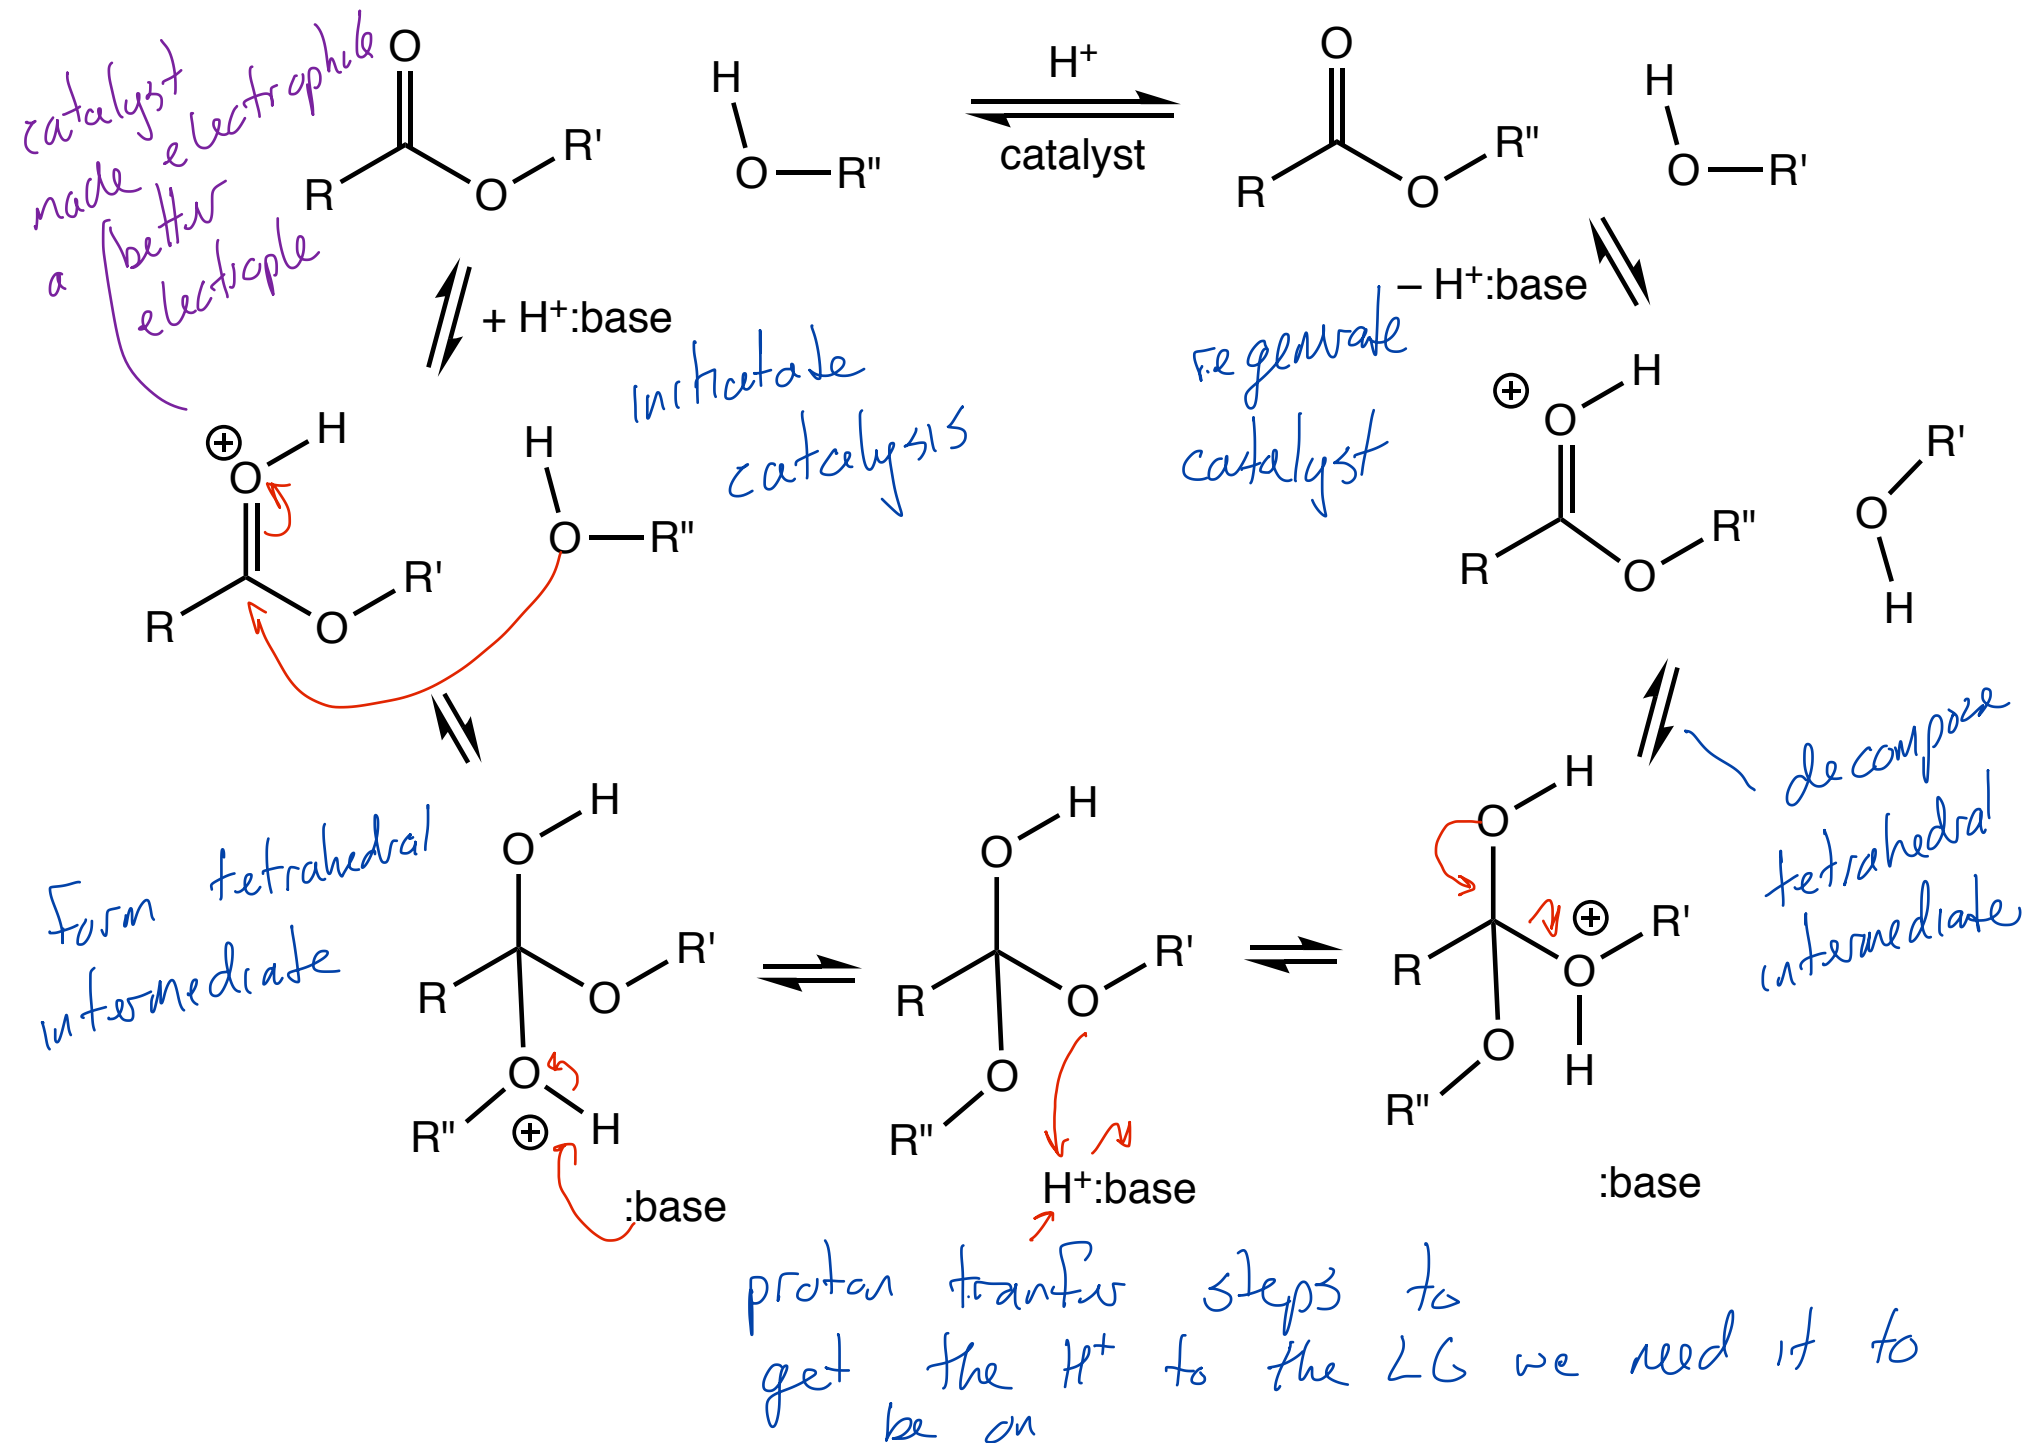 catalyst
made electrophile
a better
electrople
O
R
O
R'
H
O
R"
H⁺
catalyst
O
R
O
R"
H
O
R'
+ H⁺:base
initiatate
catalysis
– H⁺:base
regenerate
catalyst
⊕
O
H
R
O
R'
H
O
R"
⊕
O
H
R
O
R"
R'
O
H
Form tetrahedral
intermediate
O
H
R
O
R'
O
R"
⊕
H
:base
O
H
R
O
R'
O
R"
H⁺:base
O
H
R
⊕
O
R'
H
O
R"
:base
decompose
tetrahedral
intermediate
proton transfer steps to
get the H⁺ to the LG we need it to
be on